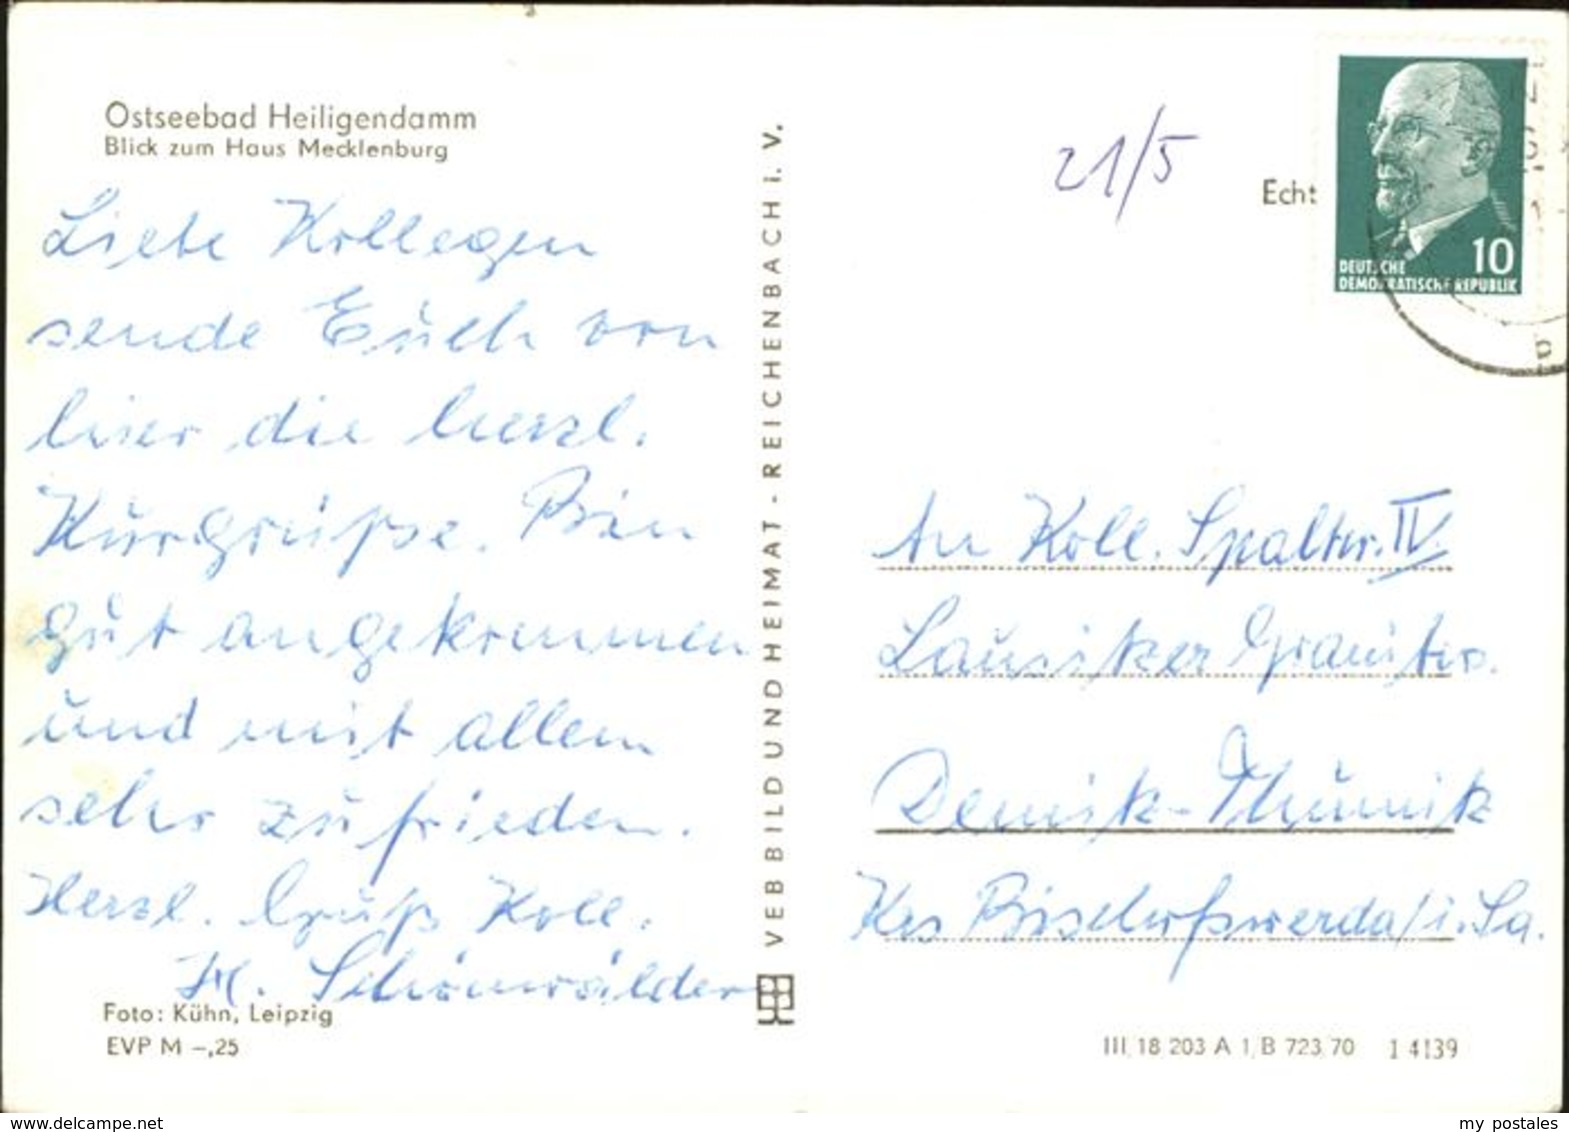 Ostseebad Heiligendamm
Blick zum Haus Mecklenburg
Liebe Kollegen
sende Euch von
hier die herzl.
Kurgrüße. Bin
gut angekommen
und mit allem
sehr zufrieden.
Herzl. Gruß Koll.
H. Schönwälder
Foto: Kühn, Leipzig
EVP M –,25
VEB BILD UND HEIMAT · REICHENBACH i. V.
21/5
Echt
10
DEUTSCHE
DEMOKRATISCHE REPUBLIK
An Koll. Spalter. IV.
Lausitzer Granitw.
Demitz-Thumitz
Krs Bischofswerda/i. Sa.
III 18 203 A 1 B 723 70 1 4139
www.delcampe.net
my_postales